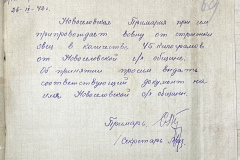 26-II-43.
69
Новоселовская Примария при сем
препровождает вовну от стрижки
овец в количестве 45 килограмов
от Новоселовской с/х общины.
Об принятии просим выдать
соответствующий документ на
имя Новоселовской с/х общины.
Примарь
/Секретарь